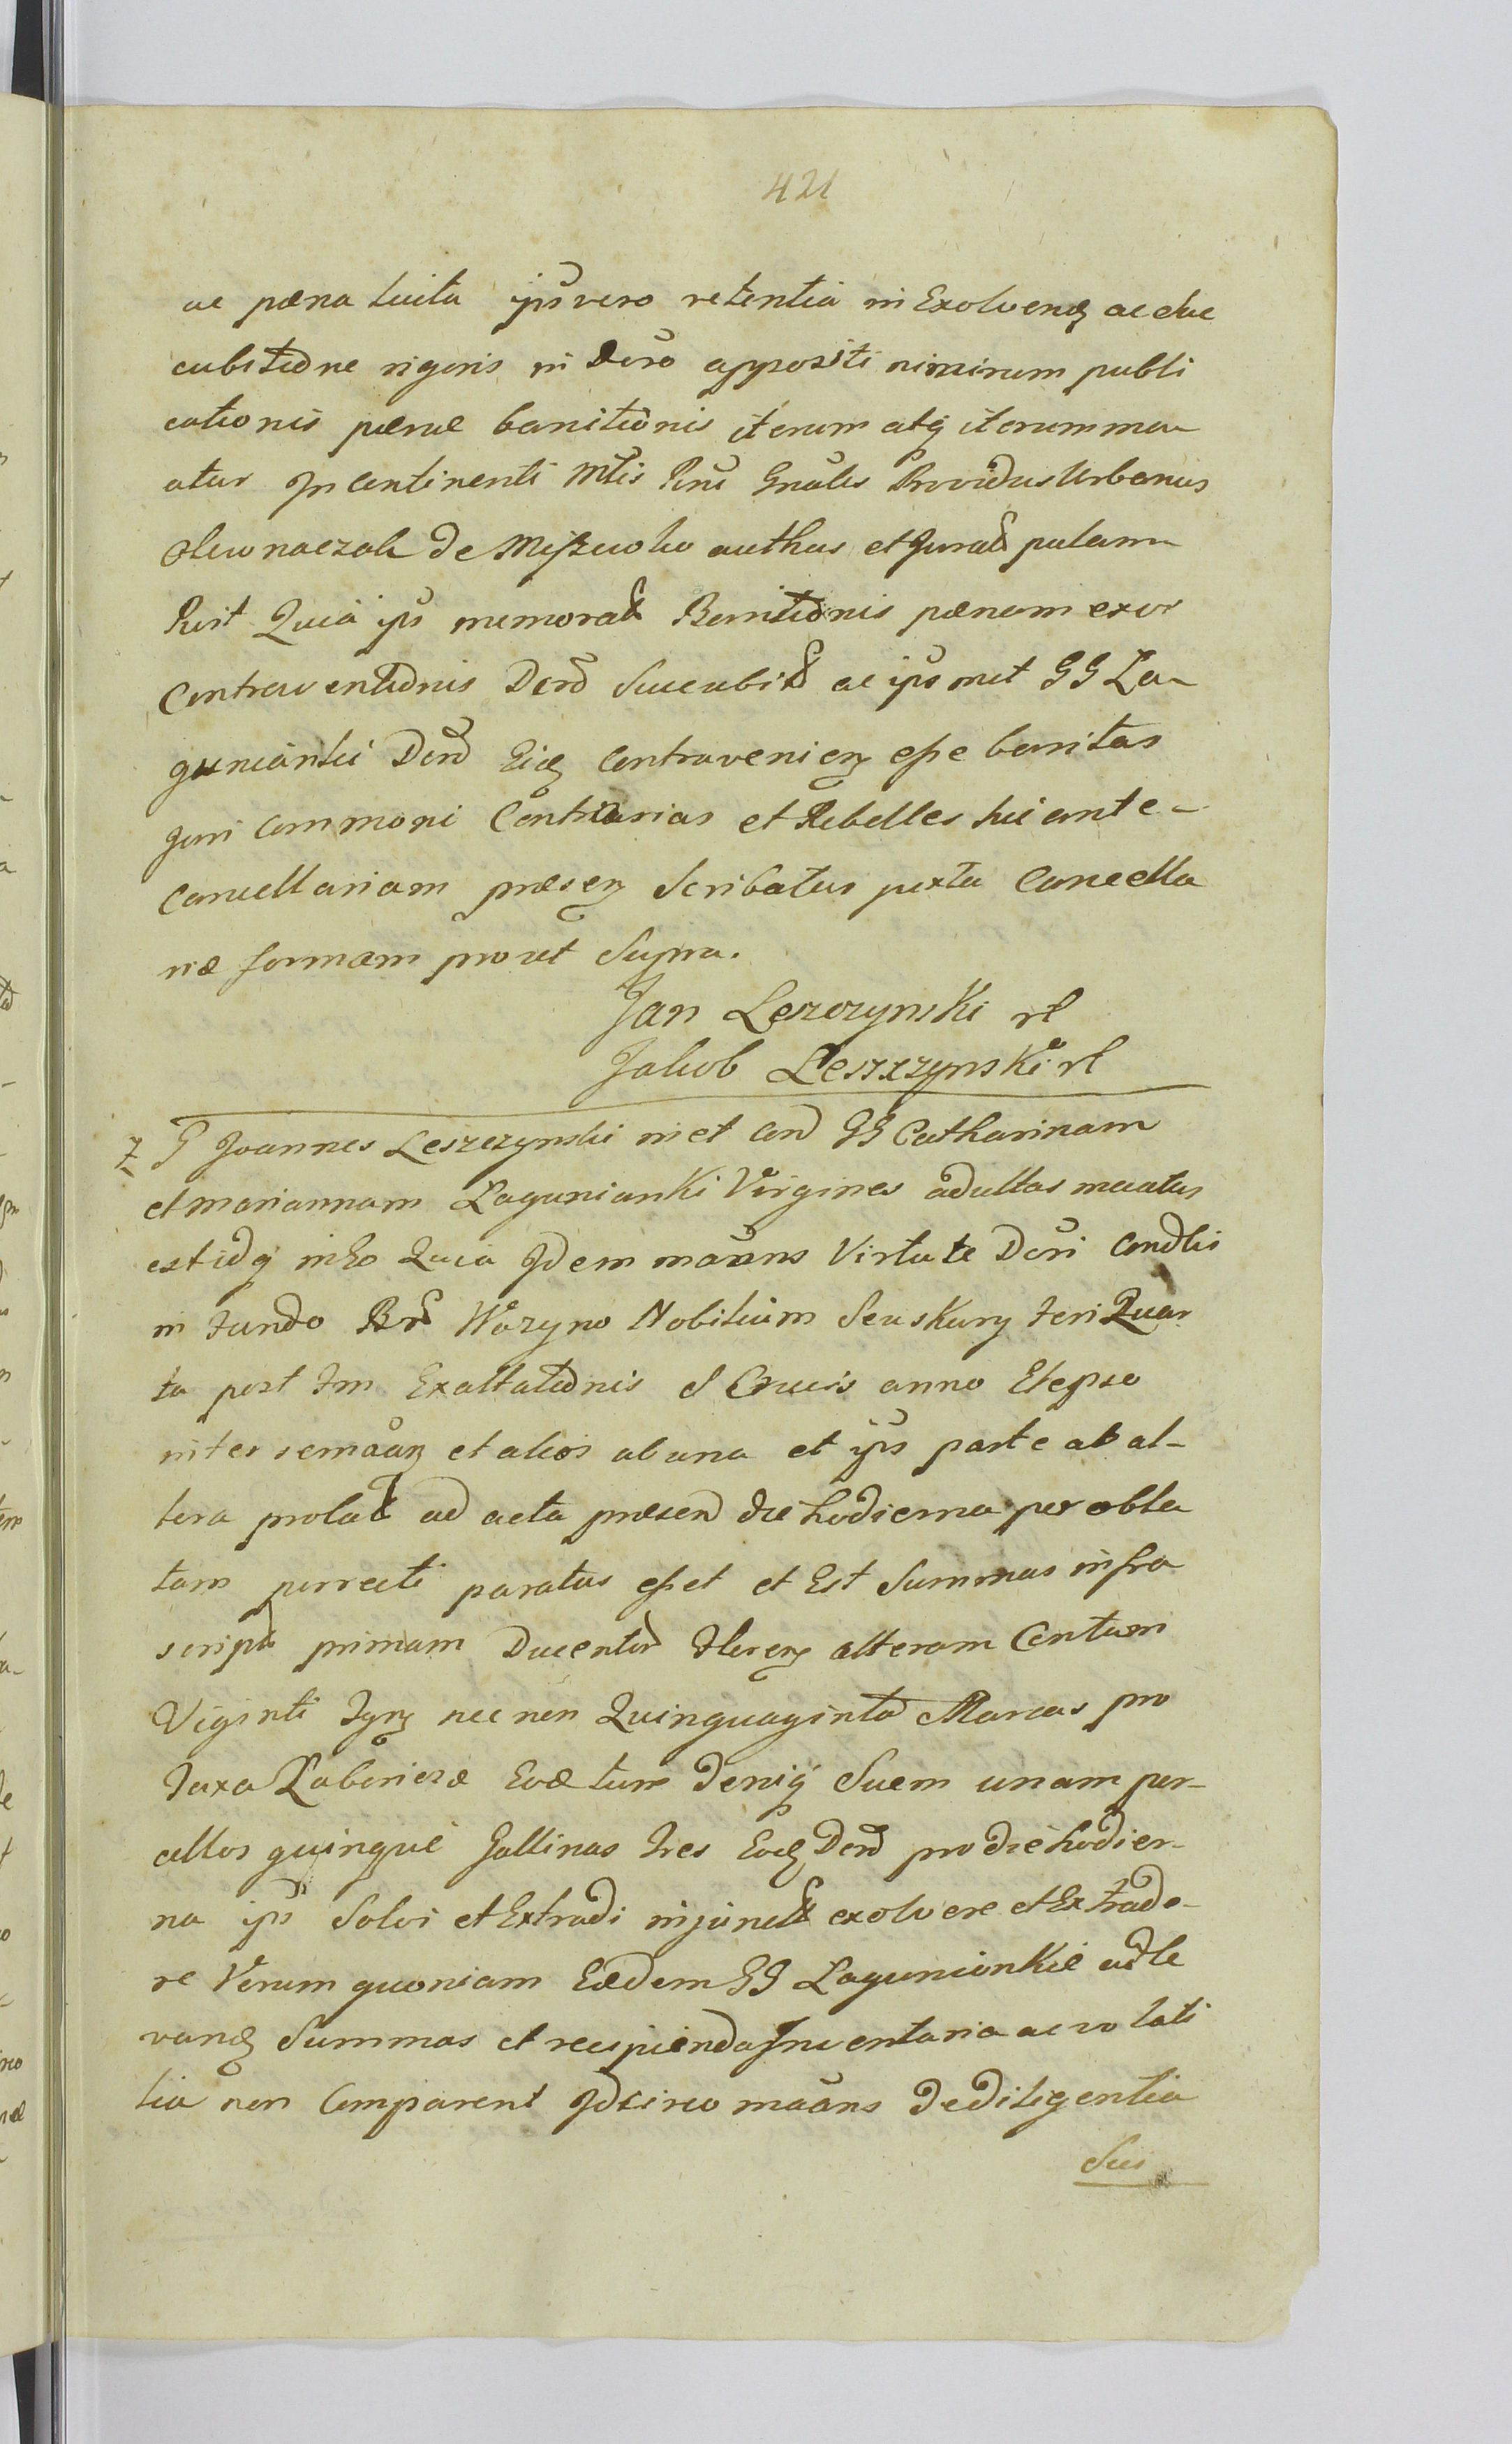 421
ac pæna luita ips vero retentia in Exolvenꝫ ac elue
cubitione rigoris in Dcro appositi nimirum publi
cationis pænæ banitionis iterum atq iterum ma-
atur In Continenti Mtis Rni Gnalis Providus Urbanus
de auths et Jurat palam
Rcit Quia ips memorat Banitionis pænam ex vi
Contraventionis Dcro Succubit ac ipsmet GG La-
gunianki Dcro Eidꝫ Contravenienꝫ esse banitas
Juri Commoni Contrarias et Rebelles hic ante-
Cancellariam præsenꝫ Scribatur juxta Cancella
riæ formam prout Supra.
Jan Leszczynski
Jakob Leszczynski
7 G Joannes Leszczynski niet con GG Catharinam
et Mariannam Lagunianki Virgines adultas maatus
est idq in Eo Quia Idem maans Virtute Dcri Condlis
in fundo Bnr Wozyno Nobilium Seuskury feri Quar
ta post fm Exaltationis S Crucis anno Elapso
inter semaanꝫ et alios ab una et ips parte ab al-
tera prolat ad acta præsen die hodierna per obla
tam porrecti paratus esset et Est Summas infra
script primam Ducentor flrenꝫ alteram Centum
Viginti Tynꝫ nec non Quinquaginta Marcas pro
Taxa denique Suem unam por-
cellos quinque Gallinas tres Eodꝫ Dcro pro die hodier-
na ips Solvi et Extradi injunct exolvere et Extrade-
re Verum quoniam Eædem GG Laguniankie ad le
vandꝫ Summas et recipienda Inventaria ac volati
lia non Comparent Idcirco maans De diligentia
Sui